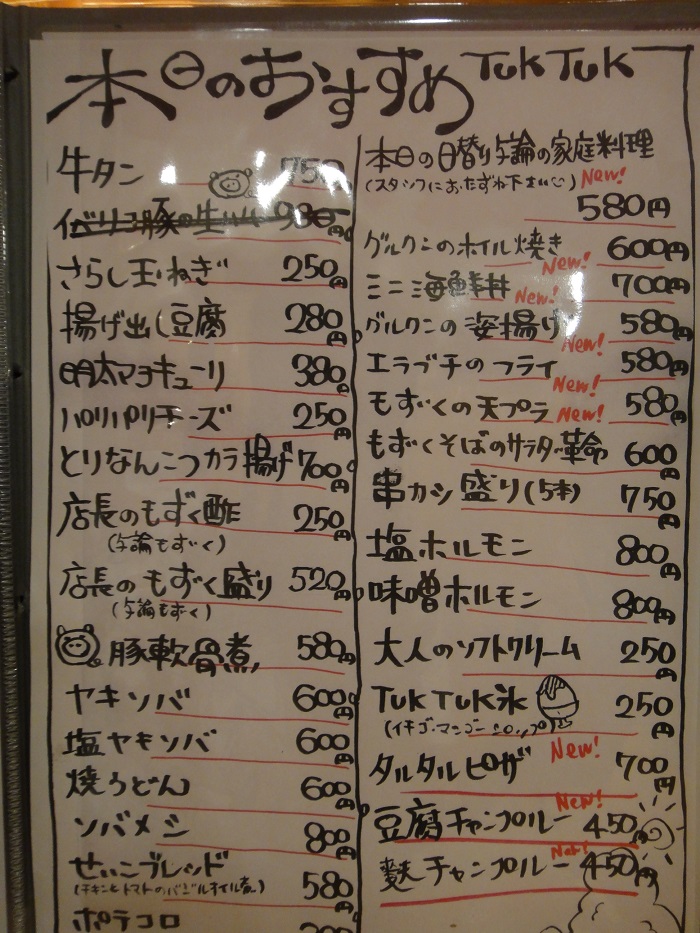 本日のおすすめ TUK TUK
牛タン 750
イベリコ豚の生ハム 930円
さらし玉ねぎ 250円
揚げ出し豆腐 280円
明太マヨキューリ 380円
パリパリチーズ 250円
とりなんこつカラ揚げ 700円
店長のもずく酢 250円
(与論もずく)
店長のもずく盛り 520円
(与論もずく)
豚軟骨煮 580円
ヤキソバ 600円
塩ヤキソバ 600円
焼うどん 600円
ソバメシ 800円
せいこブレッド
(チキンとトマトのバジルオイル煮) 580円
ポテコロ
本日の日替り与論の家庭料理
(スタッフにおたずね下さい) New!
580円
グルクンのホイル焼き 600円
New!
ミニ海鮮丼 New! 700円
グルクンの姿揚げ 580円
New!
エラブチのフライ 580円
New!
もずくの天プラ New! 580円
もずくそばのサラダ革命 600円
串カツ盛り(5本) 750円
塩ホルモン 800円
味噌ホルモン 800円
大人のソフトクリーム 250円
TUK TUK氷 250円
(イチゴ・マンゴー シロップ)
タルタルピザ New! 700円
豆腐チャンプルー New! 450円
麩チャンプルー New! 450円